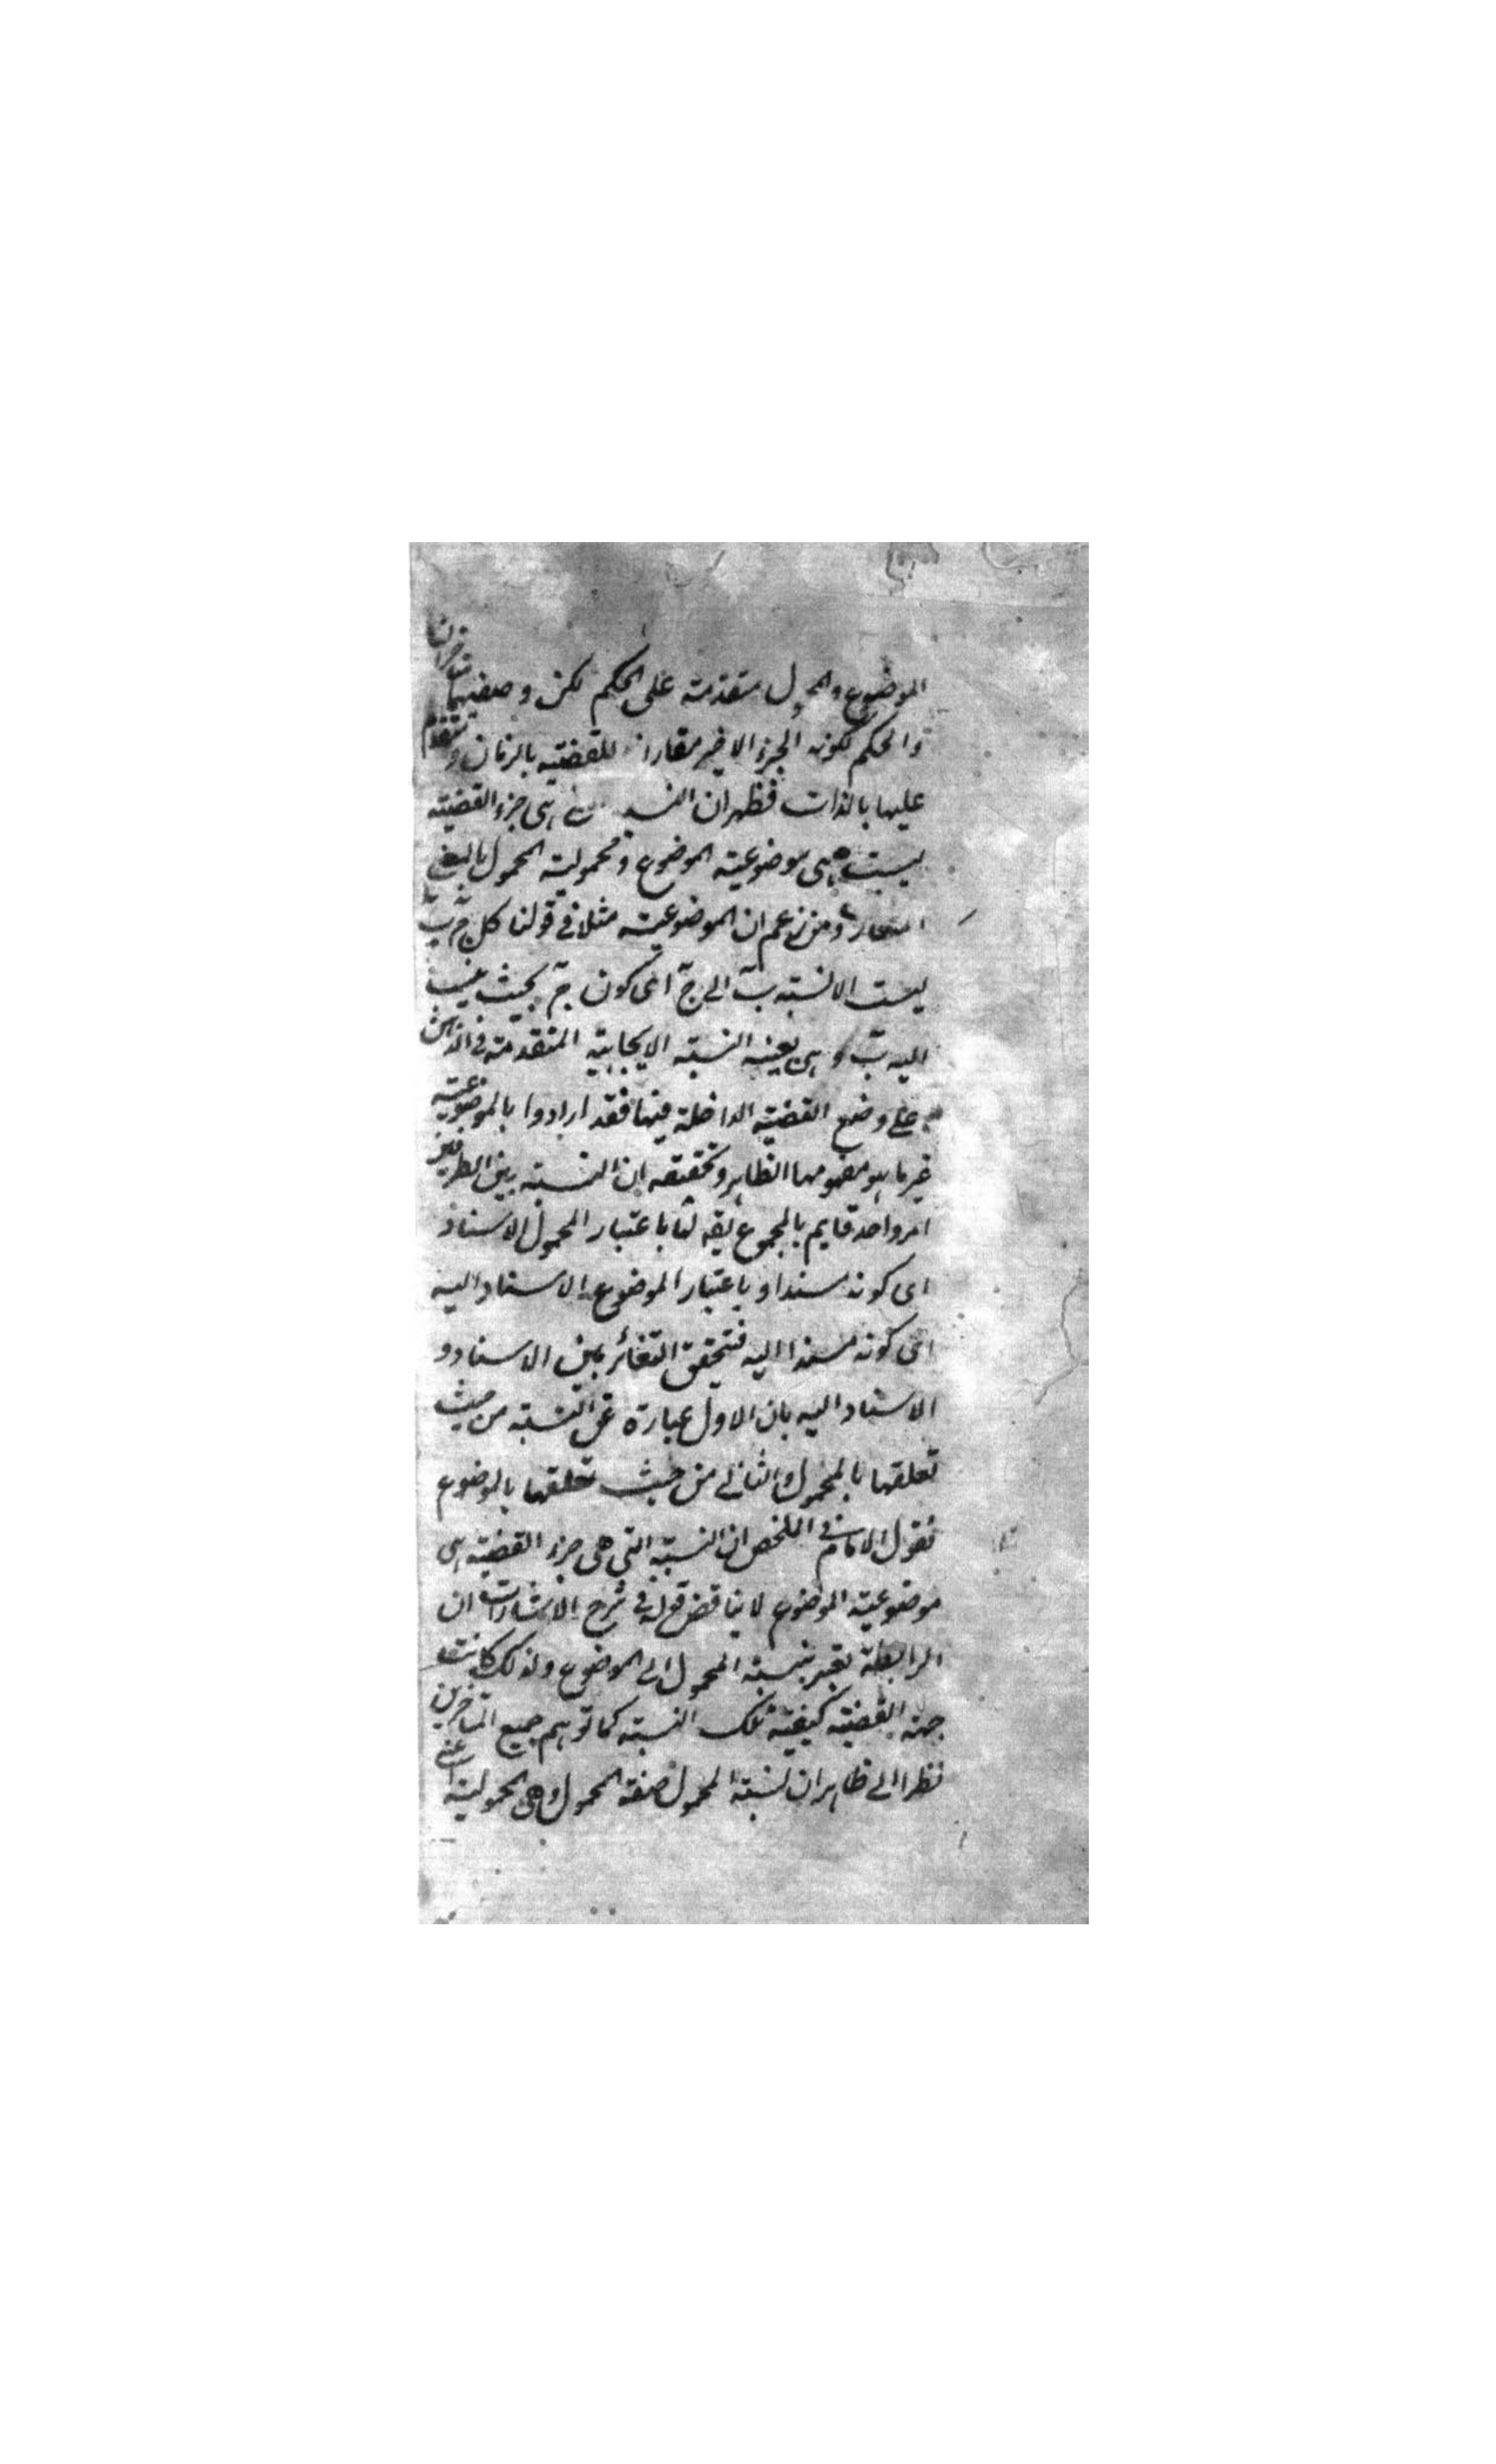 الموضوع والمحمول متقدمة على الحكم لكن وصفيهما متاخران
والحكم لكونه الجزء الاخير مقارن للقضية بالزمان و متقدم
عليها بالذات فظهر ان النسبة التي هى جزء القضية
ليست هى موضوعية الموضوع و محمولية المحمول بالمعنى
المتعارف ومن زعم ان الموضوعية مثلا فى قولنا كل ج ب
ليست الا نسبة ب الى ج اى كون ج بحيث ينسب
اليه ب و هى بعينه النسبة الايجابية المتقدمة فى الذهن
على وضع القضية الداخلة فيها فقد ارادوا بالموضوعية
غير ما هو مفهومها الظاهر وتحقيقه ان النسبة بين الطرفين
امر واحد قايم بالمجموع يقه لها باعتبار المحمول الاسناد
اى كونه مسندا و باعتبار الموضوع الاسناد اليه
اى كونه مسندا اليه فتحقق التغائر بين الاسناد و
الاسناد اليه بان الاول عبارة عن النسبة من حيث
تعلقها بالمحمول والثانى من حيث تعلقها بالموضوع
فقول الامام فى الملخص ان النسبة التى هى جزء القضية هى
موضوعية الموضوع لا يناقض قوله فى شرح الاشارات ان
الرابطة تعبر بنسبة المحمول الى الموضوع ولذلك كانت
جهة القضية كيفية تلك النسبة كما توهم جميع المتاخرين
نظرا الى ظاهر ان نسبة المحمول صفة المحمول وهى المحمولية اعنى